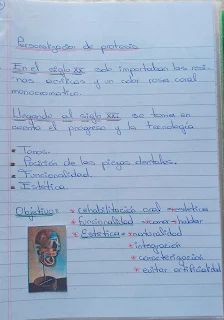 Personalización de protesis
En el siglo XX solo importaban las resi-
nas acrílicas y un color rosa coral
monocromatico.
Llegando al siglo XXI se toma en
cuenta el progreso y la tecnología
* Tonos.
* Posición de las piezas dentales.
* Funcionalidad.
* Estética.
Objetivo: * rehabilitación oral - estética
* funcionalidad - comer - hablar
* Estética = naturalidad
* integración
* caracterización
* evitar artificialidad